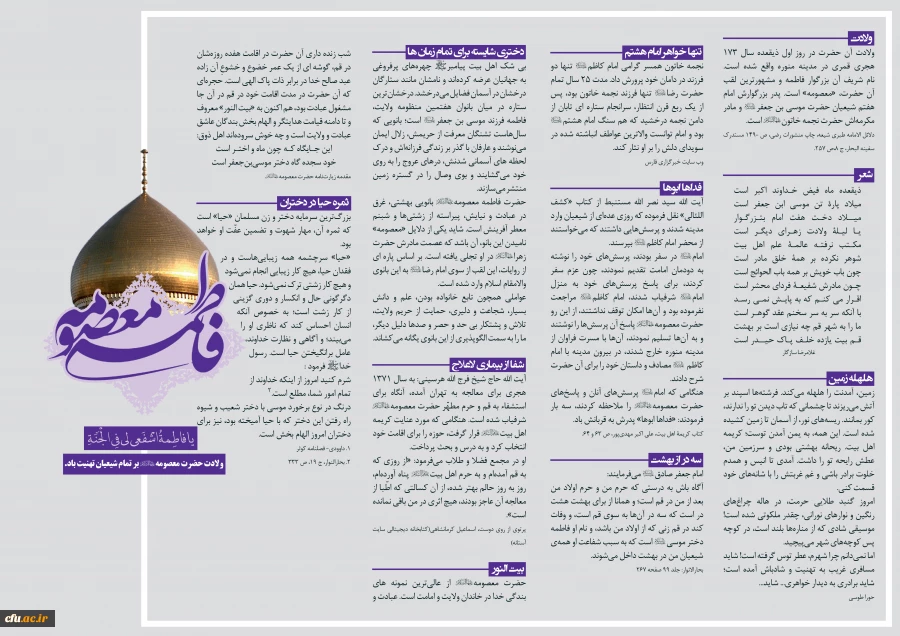 ولادت
ولادت آن حضرت در روز اول ذیقعده سال ۱۷۳
هجری قمری در مدینه منوره واقع شده است.
نام شریف آن بزرگوار فاطمه و مشهورترین لقب
آن حضرت، «معصومه» است. پدر بزرگوارش امام
هفتم شیعیان حضرت موسی بن جعفر و مادر
مکرمه‌اش حضرت نجمه خاتون است.
دلائل الامامه طبری شیعه، چاپ منشورات رضی، ص ۱۴۹۰ مستدرک
سفینه البحار، ج ۸ص ۲۵۷.
شعر
ذیقعده ماه فیض خداوند اکبر است
میلاد پارۀ تن موسی ابن جعفر است
میـلاد دخت هفت امام بـزرگـوار
یا لیلۀ ولادت زهـرای دیگر است
مکتب نرفته عالمۀ علم اهل بیت
شوهر نکرده بر همۀ خلق مادر است
چون باب خویش بر همه باب الحوائج است
چون مادرش شفیعۀ فردای محشر است
اقرار می کنم که به پایش نمی رسد
با آنکه سر به سر سخنم عقد گوهر است
ما را به شهر قم چه نیازی است بر بهشت
قـم بیت یازده خلـف پاک حیـدر است
غلامرضا سازگار
هلهله زمین
زمین، آمدنت را هلهله می‌کند. فرشته‌ها اسپند بر
آتش می‌ریزند تا چشمانی که تاب دیدن تو را ندارند،
کور بمانند. ریسه‌های نور، از آسمان تا زمین کشیده
شده است. این همه، به یمن آمدن توست؛ کریمه
اهل بیت. ریحانه بهشتی بودی و سرزمین من،
عطش رایحه تو را داشت. آمدی تا انیس و همدم
خلوت برادر باشی و غم غربتش را با شانه‌های خود
قسمت کنی.
امروز گنبد طلایی حرمت، در هاله چراغ‌های
رنگین و نوارهای نورانی، چقدر ملکوتی شده است!
موسیقی شادی که از مناره‌ها بلند است، در کوچه
پس کوچه‌های شهر می‌پیچید.
اما نمی‌دانم چرا شهرم، عطر توس گرفته است! شاید
مسافری غریب به تهنیت و شادباش آمده است؛
شاید برادری به دیدار خواهری.. شاید...
حورا طوسی
تنها خواهر امام هشتم
نجمه خاتون همسر گرامی امام کاظم تنها دو
فرزند در دامان خود پرورش داد. مدت ۲۵ سال تمام
حضرت رضا تنها فرزند نجمه خاتون بود، پس
از یک ربع قرن انتظار، سرانجام ستاره ای تابان از
دامن نجمه درخشید که هم سنگ امام هشتم
بود و امام توانست والاترین عواطف انباشته شده در
سویدای دلش را بر او نثار کند.
وب سایت خبرگزاری فارس
فداها ابوها
آیت الله سید نصر الله مستنبط از کتاب «کشف
اللئالی» نقل فرموده که روزی عده‌ای از شیعیان وارد
مدینه شدند و پرسش‌هایی داشتند که می‌خواستند
از محضر امام کاظم بپرسند.
امام در سفر بودند، پرسش‌های خود را نوشته
به دودمان امامت تقدیم نمودند، چون عزم سفر
کردند، برای پاسخ پرسش‌های خود به منزل
امام شرفیاب شدند، امام کاظم مراجعت
نفرموده بود و آن‌ها امکان توقف نداشتند، از این رو
حضرت معصومه پاسخ آن پرسش‌ها را نوشتند
و به آن‌ها تسلیم نمودند، آن‌ها با مسرت فراوان از
مدینه منوره خارج شدند، در بیرون مدینه با امام
کاظم مصادف و داستان خود را برای آن حضرت
شرح دادند.
هنگامی که امام پرسش‌های آنان و پاسخ‌های
حضرت معصومه را ملاحظه کردند، سه بار
فرمودند: «فداها ابوها» پدرش به قربانش باد.
کتاب کریمۀ اهل بیت، علی اکبر مهدی‌پور، ص ۶۳ و ۶۴.
سه در از بهشت
امام جعفر صادق می‌فرمایند:
آگاه باش به درستی که حرم من و حرم اولاد من
بعد از من در قم است؛ و همانا از برای بهشت هشت
در است که سه در آن‌ها به سوی قم است، و وفات
کند در قم زنی که از اولاد من باشد، و نام او فاطمه
دختر موسی است که به سبب شفاعت او همه‌ی
شیعیان من در بهشت داخل می‌شوند.
بحارالانوار: جلد ۹۹ صفحه ۲۶۷
دختری شایسته برای تمام زمان ها
بی شک اهل بیت پیامبر چهره‌های پرفروغی
به جهانیان عرضه کرده‌اند و نامشان مانند ستارگان
درخشان در آسمان فضایل می‌درخشد. درخشان‌ترین
ستاره در میان بانوان هفتمین منظومه ولایت،
فاطمه فرزند موسی بن جعفر است؛ بانویی که
سال‌هاست تشنگان معرفت از حریمش، زلال ایمان
می‌نوشند و عارفان با گذر بر زندگی فرزانه‌اش و درک
لحظه های آسمانی شدنش، درهای عروج را به روی
خود می‌گشایند و بوی وصال را در گستره زمین
منتشر می‌سازند.
حضرت فاطمه معصومه بانویی بهشتی، غرق
در عبادت و نیایش، پیراسته از زشتی‌ها و شبنم
معطر آفرینش است. شاید یکی از دلایل «معصومه»
نامیدن این بانو، آن باشد که عصمت مادرش حضرت
زهرا در او تجلی یافته است. بر اساس پاره ای
از روایات، این لقب از سوی امام رضا به این بانوی
والامقام اسلام وارد شده است.
عواملی همچون تابع خانواده بودن، علم و دانش
بسیار، شجاعت و دلیری، حمایت از حریم ولایت،
تلاش و پشتکار بی حد و حصر و صدها دلیل دیگر،
ما را به سمت الگوپذیری از این بانوی یگانه می‌کشاند.
شفا از بیماری لاعلاج
آیت الله حاج شیخ فرج الله هرسینی: به سال ۱۳۷۱
هجری برای معالجه به تهران آمده، آنگاه برای
استشفاء به قم و حرم مطهّر حضرت معصومه
شرفیاب شده است. هنگامی که مورد عنایت کریمه
اهل بیت قرار گرفت، حوزه را برای اقامت خود
انتخاب کرد و به درس و بحث پرداخت.
او در مجمع فضلا و طلاب می‌فرمود: «از روزی که
به قم آمده‌ام و به حرم اهل بیت پناه آورده‌ام،
روز به روز حالم بهتر شده، از آن کسالتی که اطبا از
معالجه آن عاجز بودند، هیچ اثری در من باقی نمانده
است».
پرتوی از روی دوست، اسماعیل کرمانشاهی(کتابخانه دیجیتالی سایت
آستانه)
بیت النور
حضرت معصومه از عالی‌ترین نمونه های
بندگی خدا در خاندان ولایت و امامت است. عبادت و
شب زنده داری آن حضرت در اقامت هفده روزه‌شان
در قم، گوشه ای از یک عمر خضوع و خشوع آن زاده
عبد صالح خدا در برابر ذات پاک الهی است. حجره‌ای
که آن حضرت در مدت اقامت خود در قم در آن جا
مشغول عبادت بود، هم اکنون به «بیت النور» معروف
و تا دامنه قیامت هدایتگر و الهام بخش بندگان عاشق
عبادت و ولایت است و چه خوش سروده‌اند اهل ذوق:
این جـایگاه کـه چون ماه و اخـتر است
خود سجده گاه دختر موسی‌بن‌جعفر است
مقدمه زیارتنامه حضرت معصومه
ثمره حیا در دختران
بزرگ‌ترین سرمایه دختر و زن مسلمان «حیا» است
که ثمره آن، مهار شهوت و تضمین عفّت او خواهد
بود.
«حیا» سرچشمه همه زیبایی‌هاست و در
فقدان حیا، هیچ کار زیبایی انجام نمی‌شود
و هیچ کار زشتی ترک نمی‌شود. حیا همان
دگرگونی حال و انکسار و دوری گزینی
از کار زشت است؛ به خصوص آنکه
انسان احساس کند که ناظری او را
می‌بیند؛ و آگاهی و نظارت خداوند،
عامل برانگیختن حیا است. رسول
خدا فرمود :
شرم کنید امروز از اینکه خداوند از
تمام امور شما، مطلع است.۲
درنگ در نوع برخورد موسی با دختر شعیب و شیوه
راه رفتن این دختر که با حیا آمیخته بود، نیز برای
دختران امروز الهام بخش است.
۱. داوودی- فصلنامه کوثر
۲. بحارالانوار، ج ۱۹، ص ۲۳۳
فاطمه معصومه
یا فاطِمَةُ اشْفَعی لی فِی الْجَنَّةِ
ولادت حضرت معصومه بر تمام شیعیان تهنیت باد.
cfu.ac.ir